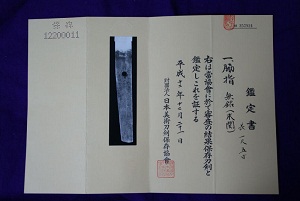 鑑定書
一、脇指 無銘(末関)
長 一尺五寸
右は當協會に於て審査の結果保存刀剣と
鑑定しこれを証する
平成十二年十二月二十一日
財団法人日本美術刀剣保存協會
12200011